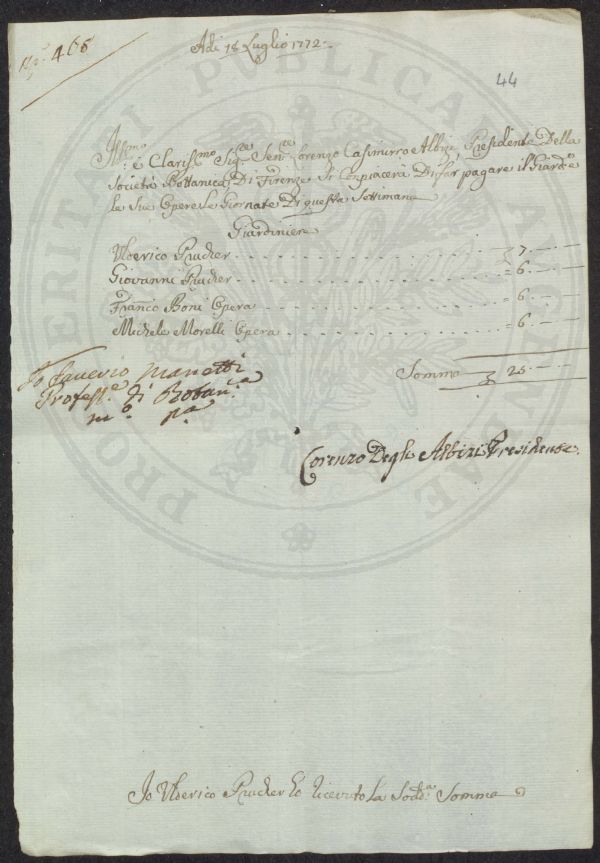 N.° 466
Adi 18 Luglio 1772
44
Ill.mo
e Clariss.mo Sig.re Sen.re Lorenzo Casimirro Albizi Presidente Della
Società Bottanica Di Firenze Si Conpiacerà Di far pagare il Giard.re
le Sue Opere le Giornate Di questa Settimana
Giardiniere
Ulderico Prucher 7
Giovanni Prucher 6
Franco Boni Opera 6
Michele Morelli Opera 6
Somma 25
Io Saverio Manetti
Profess.e di Botan.ca
m.o p.a
Lorenzo Degli Albizi Presidente
Io Ulderico Prucher ho ricevuto la Sodd.a Somma
PROSPERITATI PUBLICAE AUGENDAE